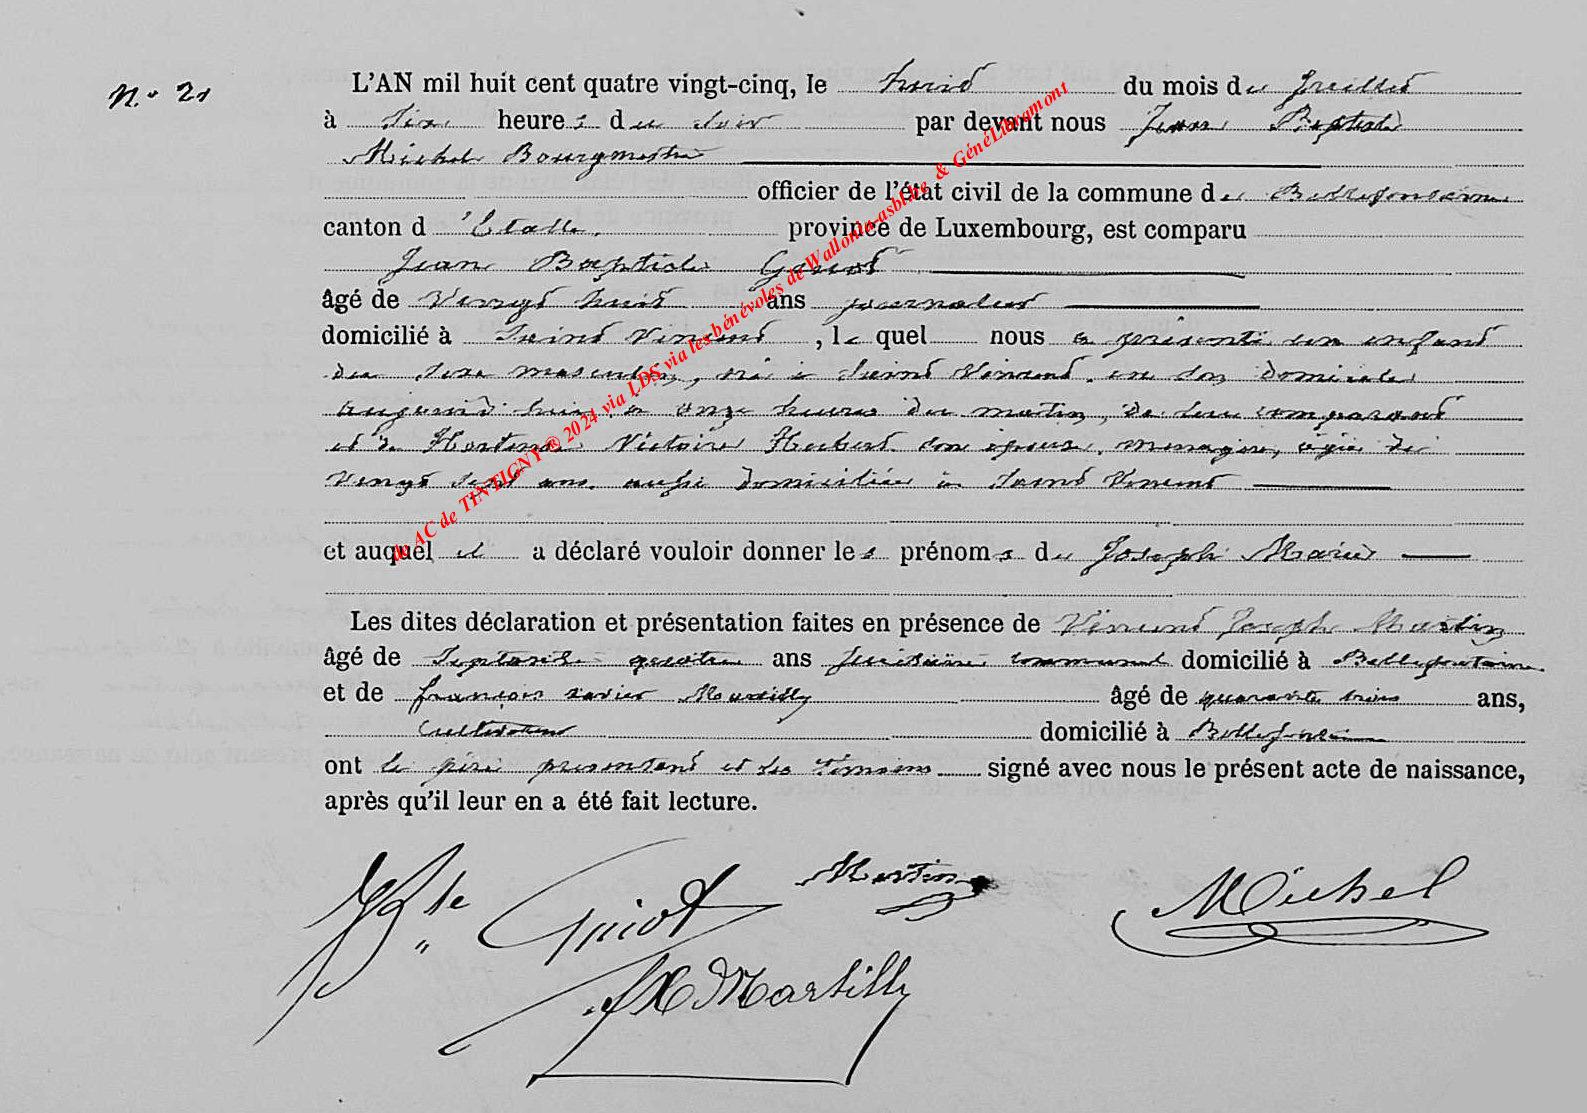 N.o 21
L'AN mil huit cent quatre vingt-cinq, le huit du mois de Juillet
à six heures du soir par devant nous Jean Baptiste
Michel Bourgmestre
officier de l'état civil de la commune de Bellefontaine
canton d'Etalle. province de Luxembourg, est comparu
Jean Baptiste Guiot
âgé de Vingt huit ans journalier
domicilié à Saint Vincent, le quel nous a présenté un enfant
du sexe masculin, né à Saint Vincent, en son domicile
aujourd'hui à onze heures du matin, de lui comparant
et de Hortense Victoire Hubert son épouse, menagère, agée de
Vingt sept ans, aussi domiciliée à Saint Vincent
et auquel il a déclaré vouloir donner les prénoms de Joseph Marie
Les dites déclaration et présentation faites en présence de Vincent Joseph Martin
âgé de Septante quatre ans secrétaire communal domicilié à Bellefontaine
et de françois xavier Martilly âgé de quarante trois ans,
Cultivateur domicilié à Bellefontaine
ont le père présentant et les témoins signé avec nous le présent acte de naissance,
après qu'il leur en a été fait lecture.
Bte Guiot Martin Michel
fX Martilly
de AC de TINTIGNY © 2024 via LDS via les bénévoles de Wallonia-asbl.be & GénéLibramont